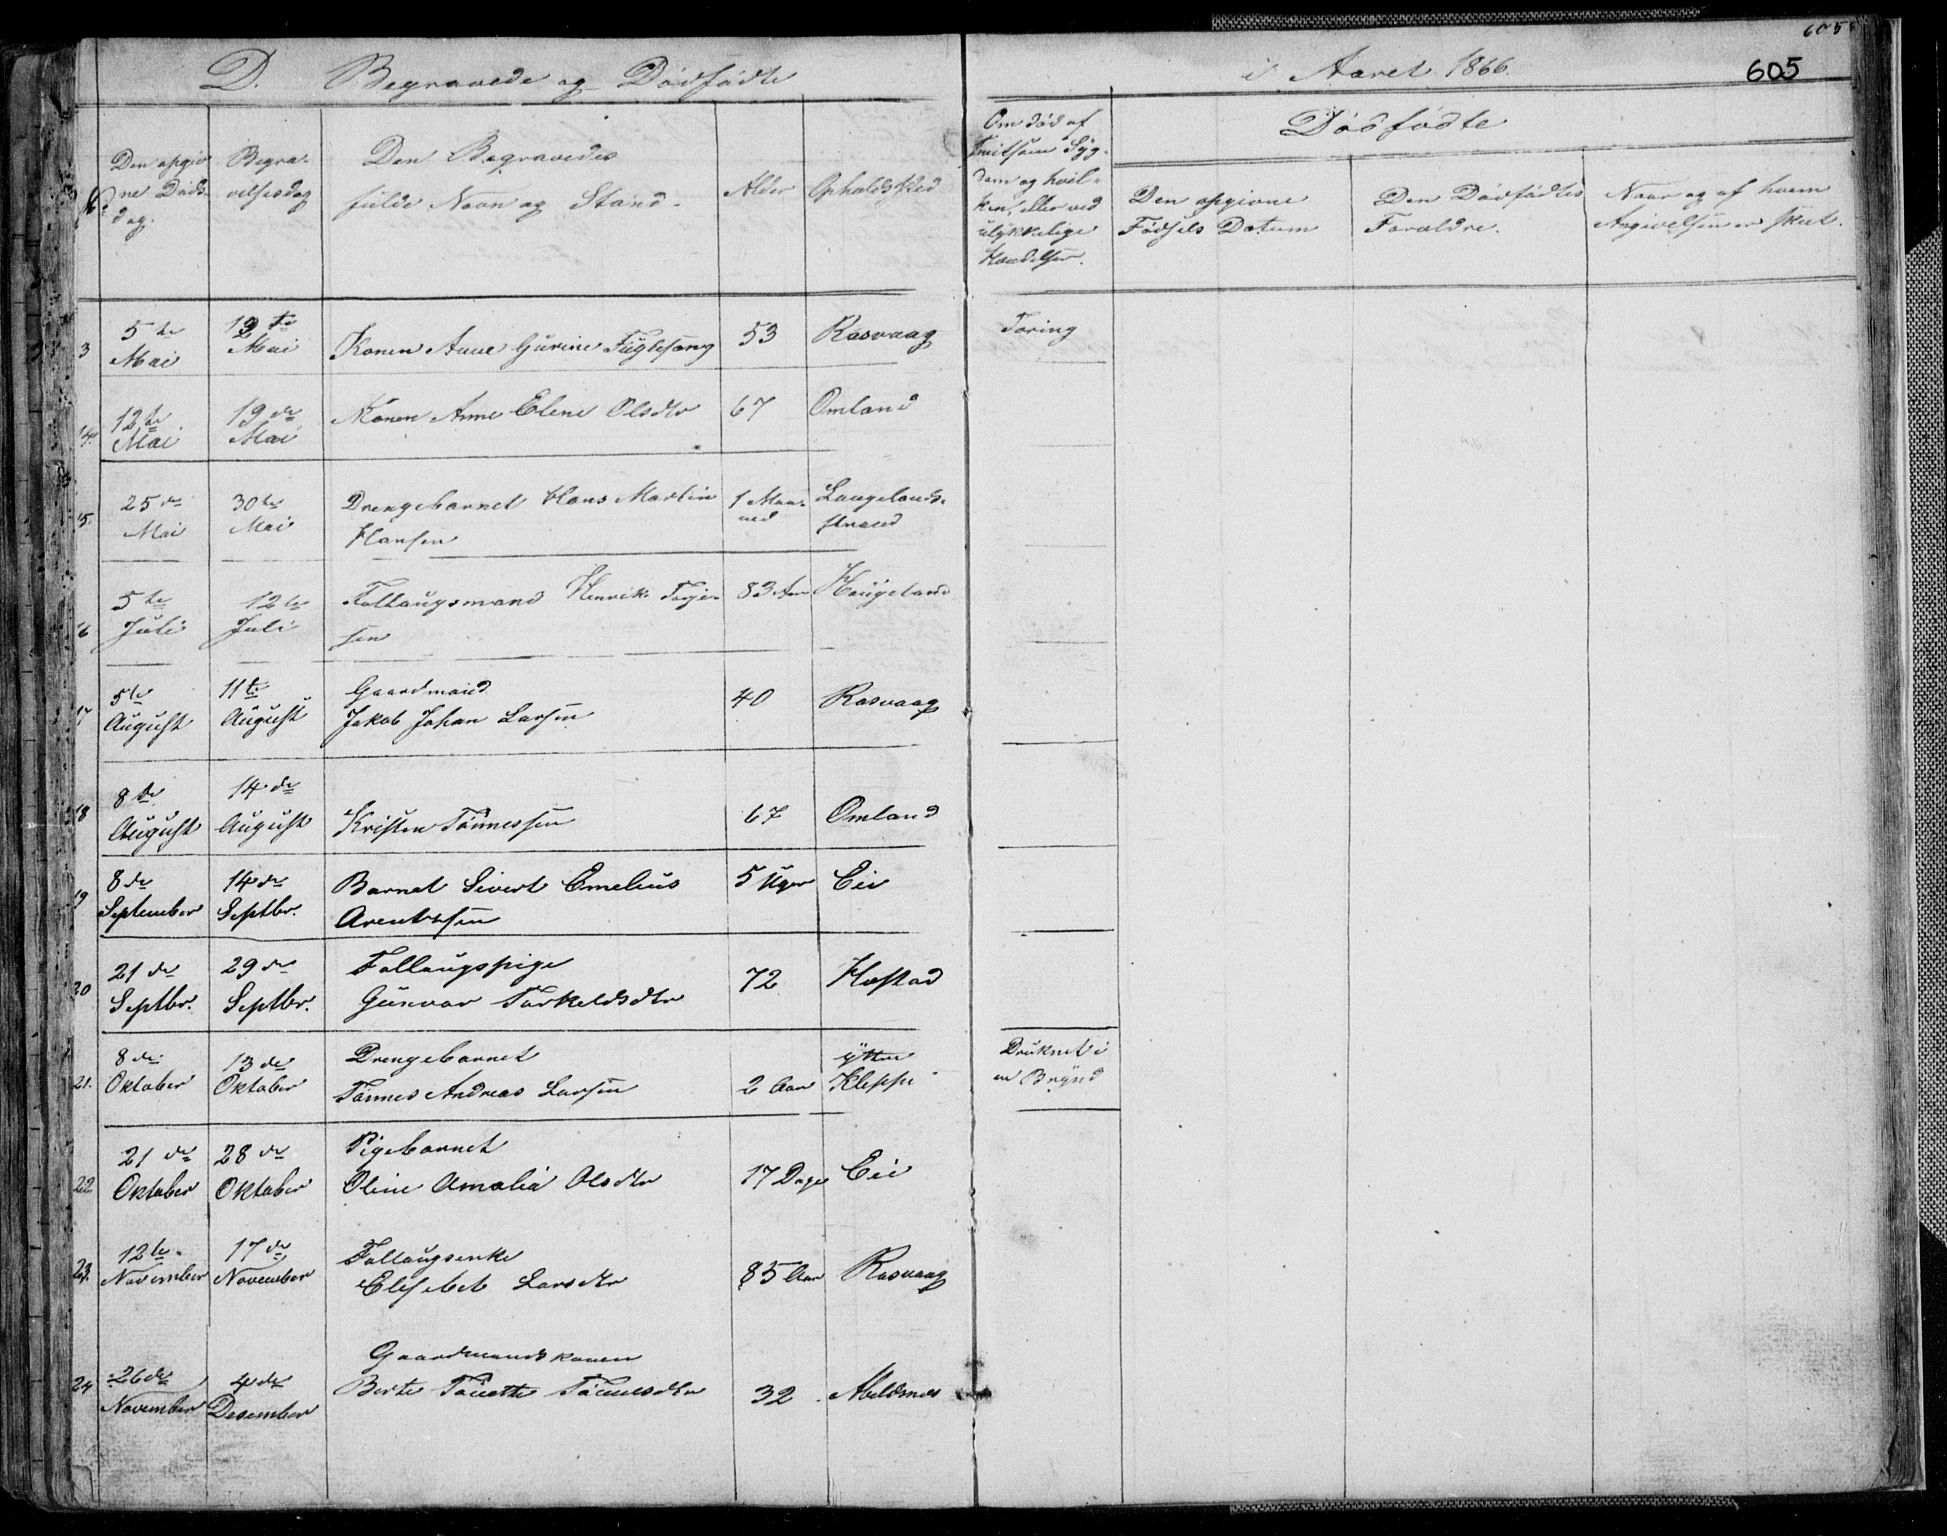 D. Begravede og Dødfødte
i Aaret 1866.
605
605
No
Den opgiv
ne Døds
dag.
Begra-
velsesdag
Den Begravedes
fulde Navn og Stand.
Alder
Opholdsted
Om død af
smitsom Syg-
dom og hvil-
ken, eller ved
ulykkelige
Hændelser.
Dødfødte
Den opgivne
Fødsels Datum
Den Dødfødtes
Forældre.
Naar og af hvem
Angivelsen er skeet.
3 5te Mai 12te Mai Konen Anne Gurine Fuglesang 53 Rasvaag Tæring
14. 12te Mai 19de Mai Konen Anne Elene Olsdtr 67 Omland
15. 25de Mai 30te Mai Drengebarnet Hans Martin 1 Maa- Laugelands-
Hansen ned straed
16 5te Juli 12te Juli Fattaugsmand Henrik Terje- 83 Aar Haugeland
sen
17 5te August 11te August Gaardmand
Jakob Johan Larsen 40 Rasvaag
18 8de August 14de August Kristen Tønnessen 67 Omland
19 8de September 14de Septbr. Barnet Sivert Emelius 5 Uger Eie
Arentsen
20 21de Septbr. 29de Septbr. Fattaugspige
Gunvor Torkeldsdtr 72 Hestad
21. 8de Oktober 13de Oktober Drengebarnet ytter Druknet i
Tønnes Andreas Larsen 2 Aar Kleppe en Brynd
22 21de Oktober 28de Oktober Pigebarnet
Oline Amalia Olsdtr 17 Dage Eie
23. 12te November 17de November Fattaugsenke
Elisebet Larsdtr 85 Aar Rasvaag
24 26de November 4de Desember Gaardmandskonen
Berte Tønette Tønnesdtr 32 Abelsnes